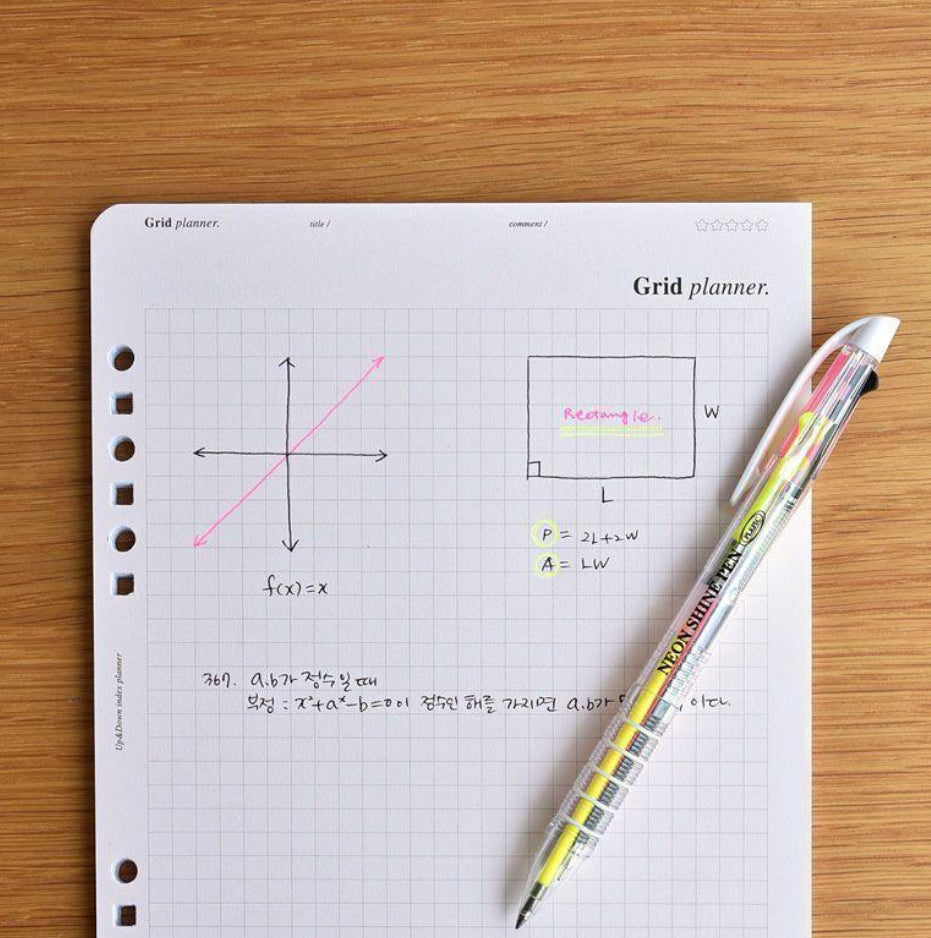 Grid planner. title / comment /
Grid planner.
Rectangle.
W
L
P = 2L+2W
A = LW
f(x)=x
367. a.b가 정수일 때
부정 : x²+aˣ-b=0이 정수인 해를 가지면 a.b가 이다.
Up&Down index planner
NEON SHINE PEN